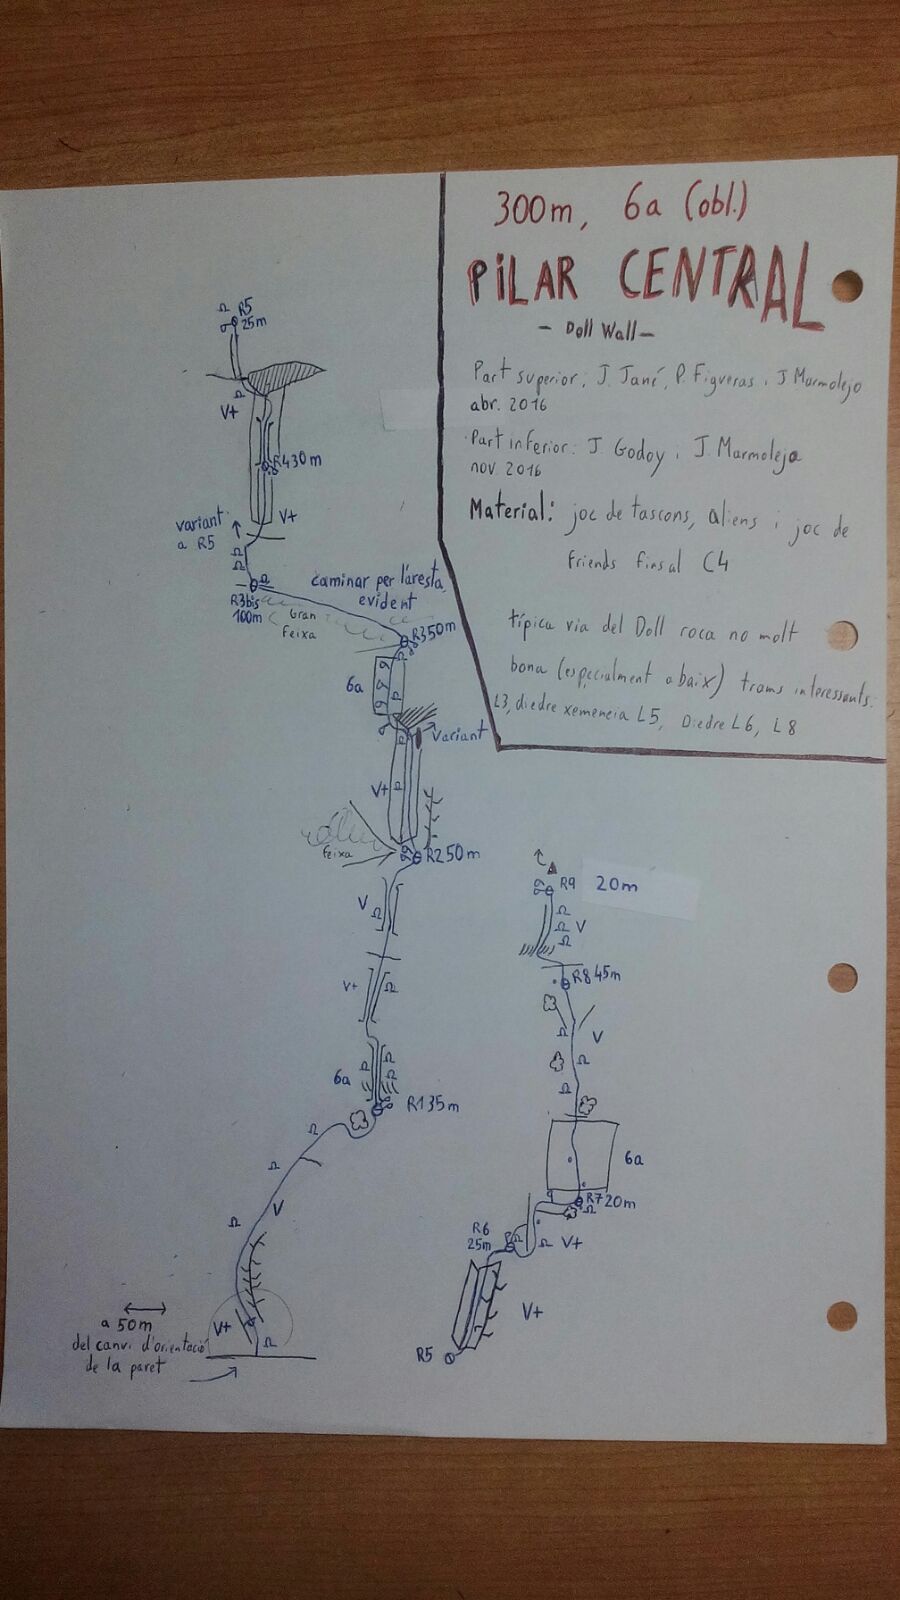 300m, 6a (obl.)
PILAR CENTRAL
- Doll Wall -
Part superior: J. Jané, P. Figueras i J Marmolejo
abr. 2016
Part inferior: J. Godoy i J. Marmolejo
nov. 2016
Material: joc de tascons, aliens i joc de
friends fins al C4
típica via del Doll roca no molt
bona (especialment abaix) trams interessants:
L3, diedre xemeneia L5, Diedre L6, L8
R5
25m
V+
R4 30m
V+
variant
a R5
R3bis
100m
Gran
Feixa
caminar per l'aresta,
evident
R3 50m
6a
variant
V+
Feixa
R2 50m
V
V+
6a
R1 35m
V
V+
a 50m
del canvi d'orientació
de la paret
R9 20m
V
R8 45m
V
6a
R7 20m
R6
25m
V+
V+
R5